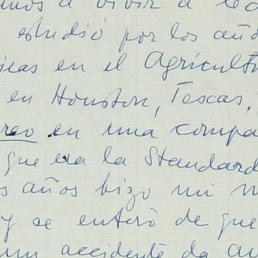 a vivir a
estudió por los año
en el Agricultu
en Houston, Tescas,
reo en una compa
que era la Standard
s años hizo mi
y se enteró de que
un accidente da au